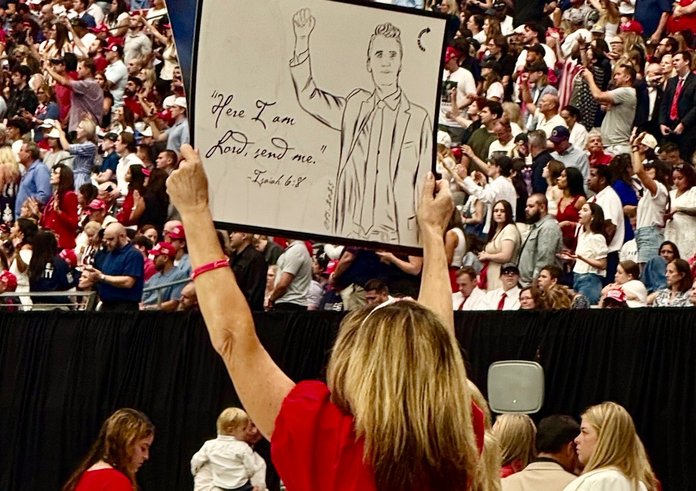 "Here I am
Lord, send me."
~Isaiah 6:8